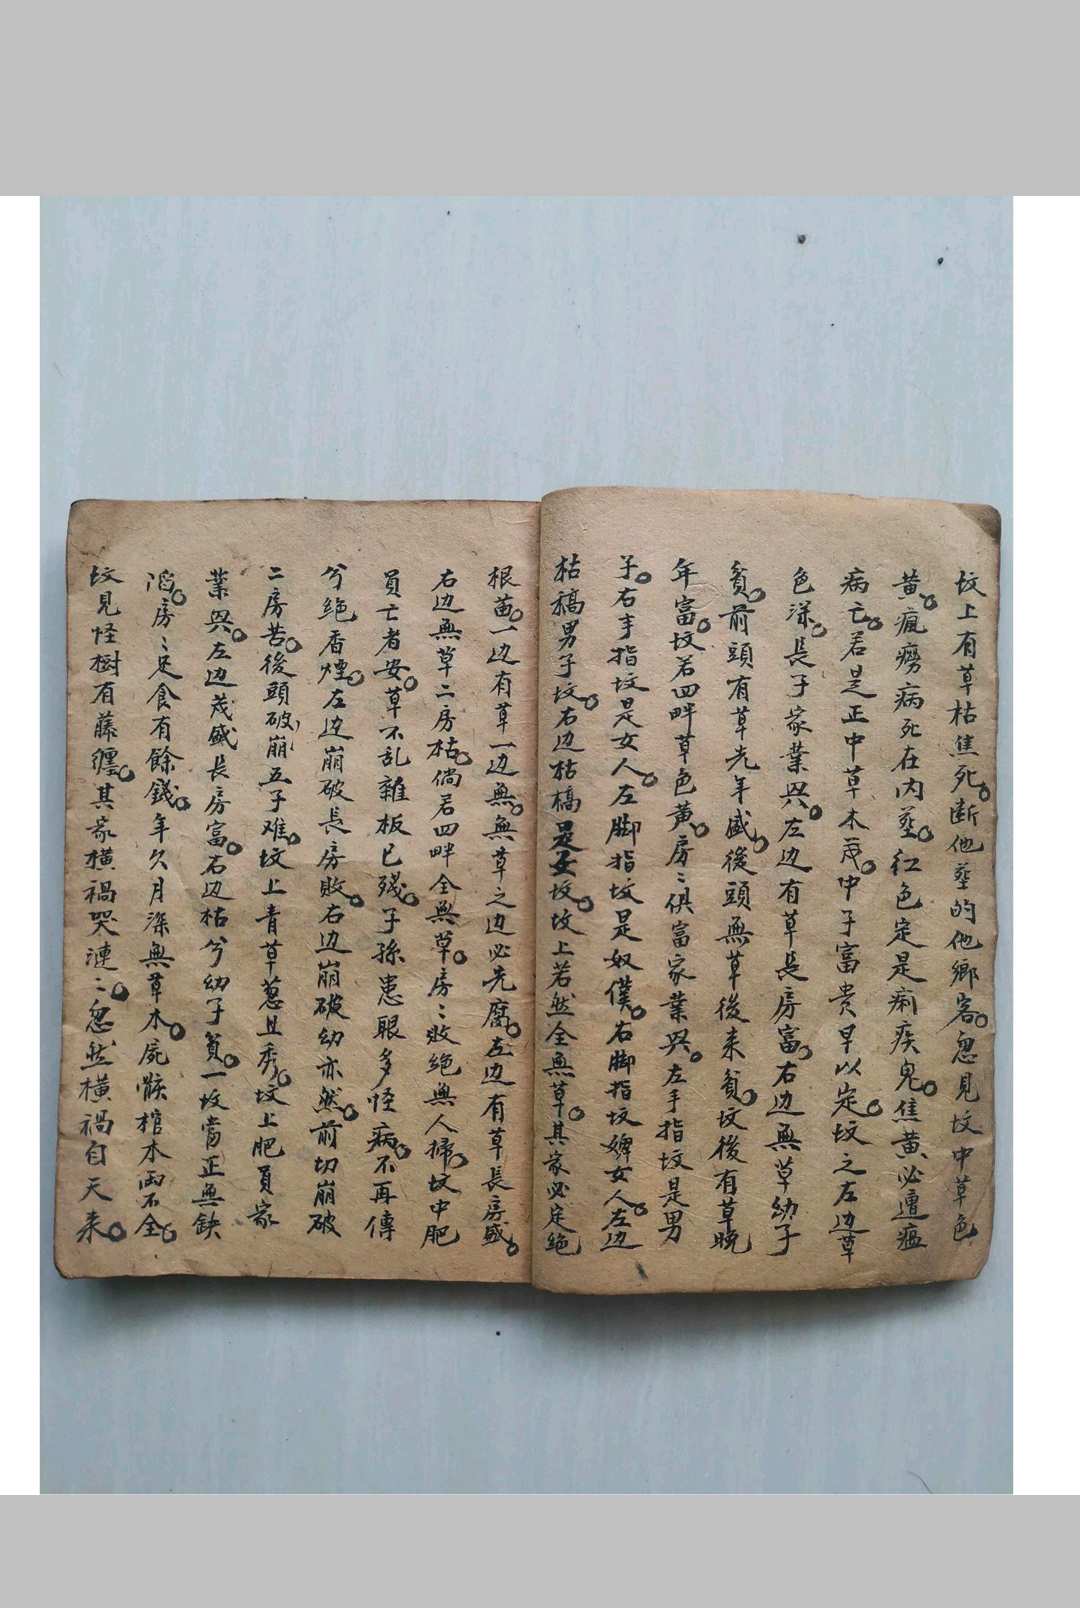 坟上有草枯焦死。断他塟的他鄉客。忽見坟中草色
黄。瘋癆病死在内塟。红色定是痢疾鬼。焦黄必遭瘟
病亡。若是正中草木茂。中子富贵早以定。坟之左边草
色深。長子家業兴。左边有草長房富。右边無草幼子
貧。前頭有草先年盛。後頭無草後来貧。坟後有草晚
年富。坟若四畔草色黄。房〻俱富家業兴。左手指坟是男
子。右手指坟是女人。左脚指坟是奴僕。右脚指坟婢女人。左边
枯槁男子坟。右边枯槁是女坟。坟上若然全無草。其家必定绝
根苗。一边有草一边無。無草之边必先腐。左边有草長房盛。
右边無草二房枯。倘若四畔全無草。房〻敗绝無人掃。坟中肥
員亡者安。草不乱雜板已殘。子孫患眼多怪病。不再傳
兮绝香煙。左边崩破長房敗。右边崩破幼亦然。前切崩破
二房苦。後頭破崩五子难。坟上青草葱且秀。坟上肥員家
業兴。左边茂盛長房富。右边枯兮幼子貧。一坟當正無缺
滔。房〻足食有餘錢。年久月深無草木。屍骸棺木両不全。
坟見怪樹有藤纏。其家横禍哭漣〻。忽然横禍自天来。